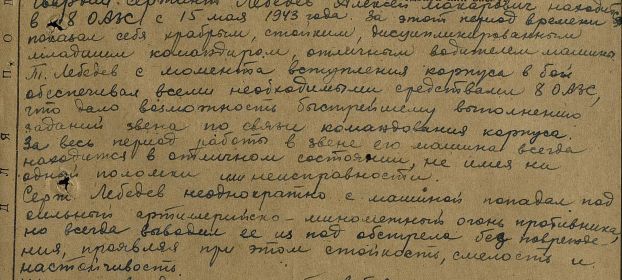 Гвардии сержант Лебедев Алексей Макарович находит
в 8 ОАЗС с 15 мая 1943 года. За этот период времени
показал себя храбрым, стойким, дисциплинированным
младшим командиром, отличным водителем машины
Т. Лебедев с момента вступления корпуса в бой
обеспечивал всеми необходимыми средствами 8 ОАЗС,
что дало возможность быстрейшему выполнению
заданий звена по связи командования корпуса.
За весь период работы в звене его машина всегда
находится в отличном состоянии, не имея ни
одной поломки или неисправности.
Серж. Лебедев неоднократно с машиной попадал под
сильный артилерийско-минометный огонь противника,
но всегда выводил ее из под обстрела без поврежде-
ния, проявляя при этом стойкость, смелость и
настойчивость.
ДЛЯ ПО